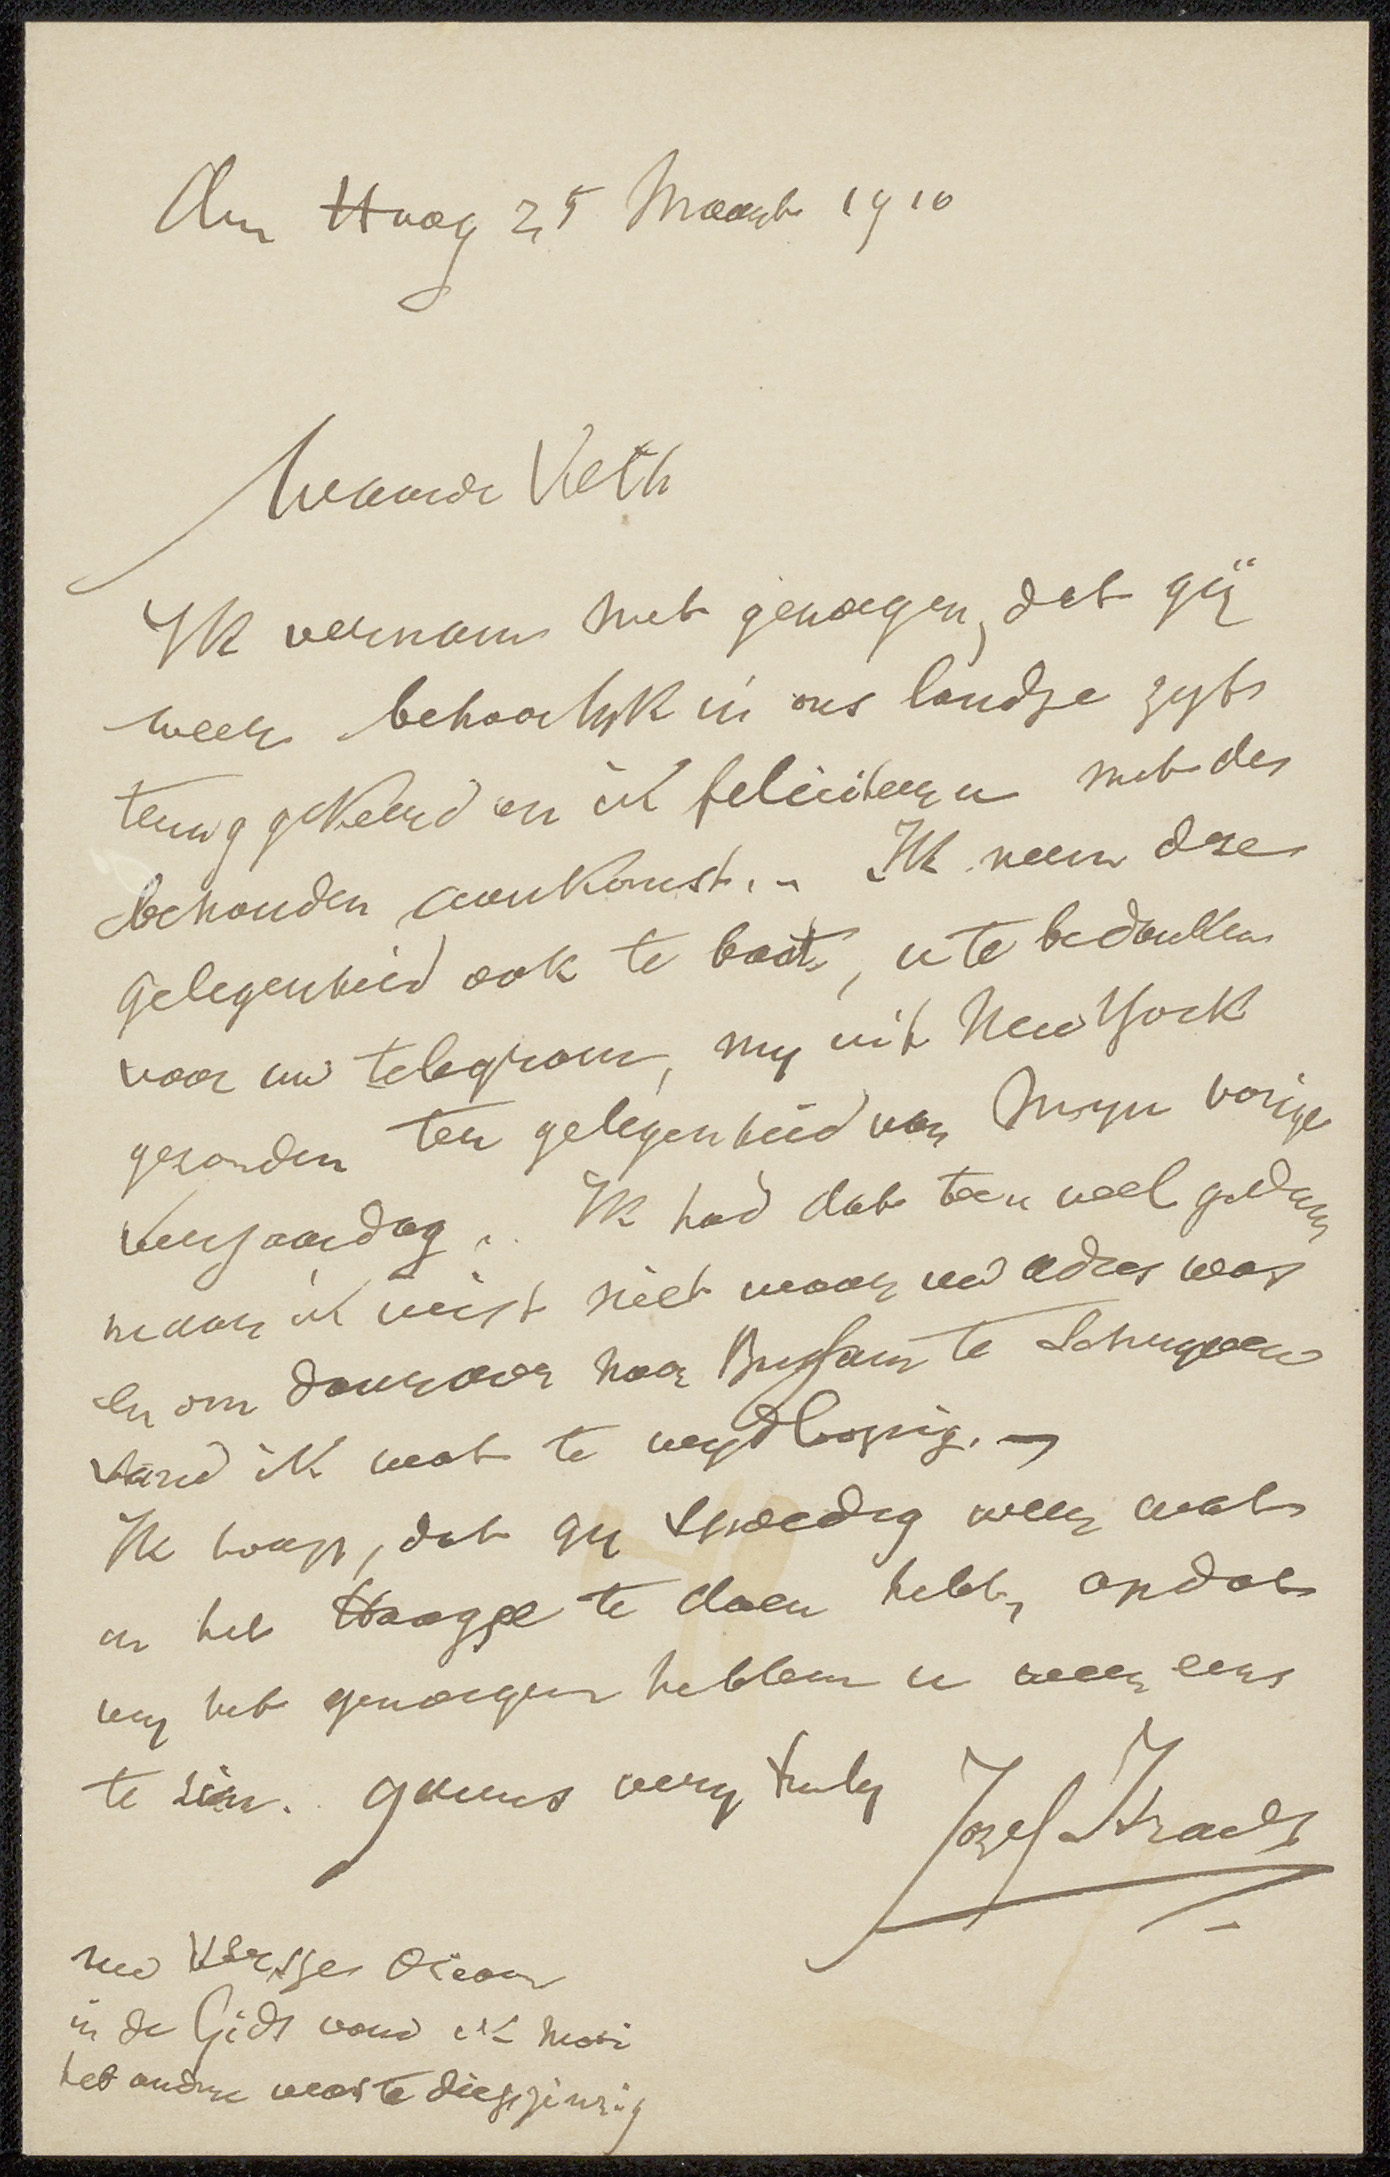 den Haag 25 Maart 1910
Waarde Veth
Ik vernam met genoegen, dat gij
weer behoorlyk in ons landje zyt
terug gekeerd en ik feliciteer u met de
behouden aankomst. Ik neem deze
gelegenheid ook te baat, u te bedanken
voor uw telegram, my uit New York
gezonden ter gelegenheid van myn vorige
verjaardag. Ik had dat toen veel gedaan
maar ik wist niet waar uw adres was
en om daarvoor naar Bussum te schrijven
vond ik wat te wydloopig. —
Ik hoop, dat gy spoedig weer wat
in het Haagje te doen hebt, opdat
wy het genoegen hebben u weer eens
te zien. yours very truly Jozef Israels
uw versje Oceaan
in de Gids vond ik mooi
het andere was te diepzinnig